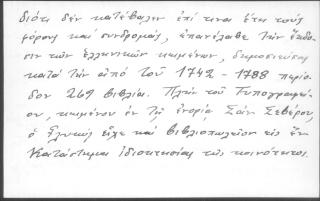 διότι δὲν κατέβαλεν ἐπί τινα ἔτη τοὺς
φόρους καὶ συνδρομάς, ἐπανέλαβε τὴν ἔκδο-
σιν τῶν ἑλληνικῶν κειμένων, δημοσιεύσας
κατὰ τὴν ἀπὸ τοῦ 1742 - 1788 περίο-
δον 269 βιβλία. Πλὴν τοῦ Τυπογραφεί-
ου, κειμένου ἐν τῇ ἐνορίᾳ Σὰν Σεβέρου,
ὁ Γλυκὺς εἶχε καὶ βιβλιοπωλεῖον εἰς ἓν
κατάστημα ἰδιοκτησίας τῆς κοινότητος.